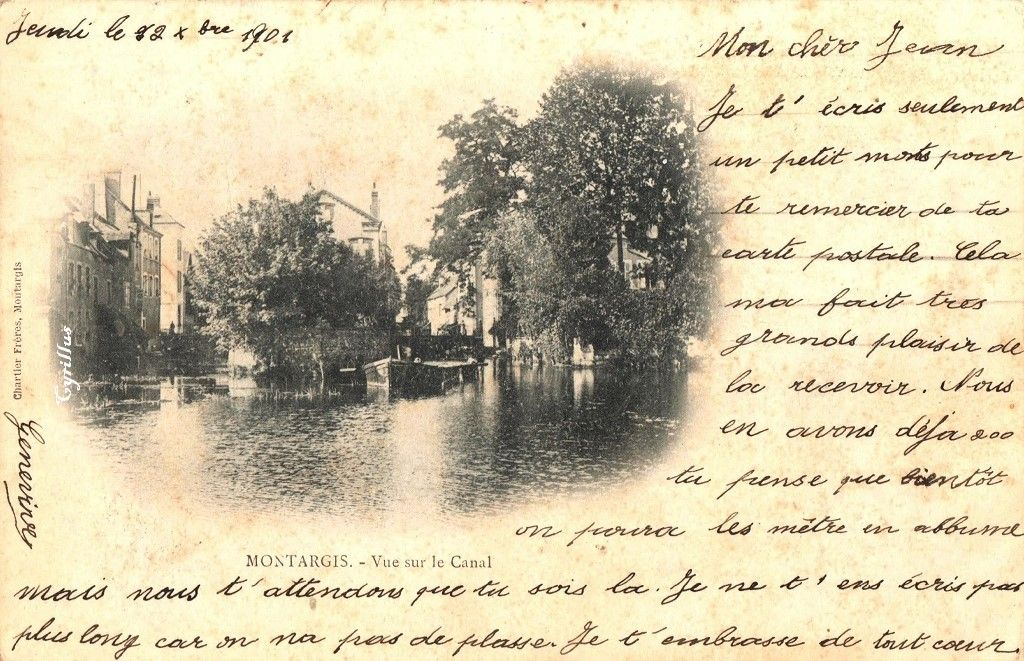 Jeudi le 22 xbre 1901
Mon chèr Jean
Je t' écris seulement
un petit mots pour
te remercier de ta
carte postale. Cela
ma fait tres
grands plaisir de
la recevoir. Nous
en avons déja 200
tu pense que bientôt
on poura les mêtre en abbume
mais nous t'attendons que tu sois la. Je ne t' ens écris pas
plus long car on na pas de plasse. Je t'embrasse de tout cœur.
Genevieve
MONTARGIS. - Vue sur le Canal
Chartier Frères, Montargis
Cyrillus